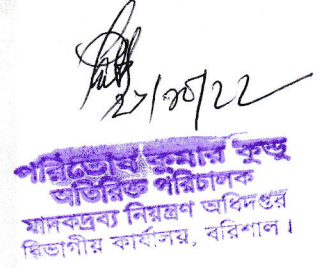 ২৭/১০/২২
পরিতোষ কুমার কুন্ডু
অতিরিক্ত পরিচালক
মাদকদ্রব্য নিয়ন্ত্রণ অধিদপ্তর
বিভাগীয় কার্যালয়, বরিশাল।